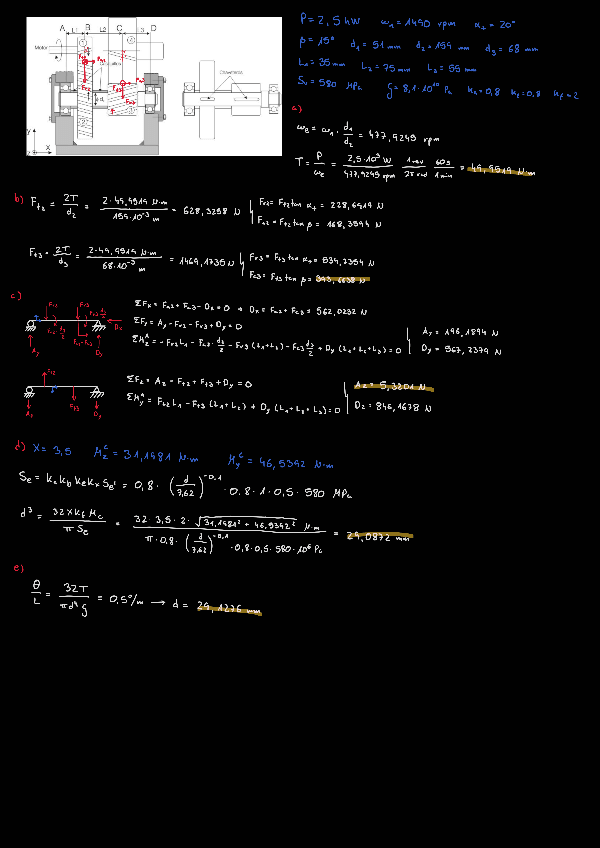 P = 2,5 kW ω₁ = 1490 rpm α_t = 20°
β = 15° d₁ = 51 mm d₂ = 159 mm d₃ = 68 mm
L₁ = 35 mm L₂ = 75 mm L₃ = 55 mm
S_u = 580 MPa g = 8,1·10¹⁰ Pa k_a = 0,8 k_e = 0,8 k_f = 2
A L1 B L2 C 3 D
Motor
Chavetas
y
z x
a)
ω_e = ω₁ · d₁/d₂ = 477,9245 rpm
T = P/ω_e = 2,5·10³ W / 477,9245 rpm · 1 rev / 2π rad · 60 s / 1 min = 49,9519 N·m
b) F_t2 = 2T/d₂ = 2·49,9519 N·m / 159·10⁻³ m = 628,3258 N
F_r2 = F_t2 tan α_t = 228,6919 N
F_a2 = F_t2 tan β = 168,3594 N
F_t3 = 2T/d₃ = 2·49,9519 N·m / 68·10⁻³ m = 1469,1735 N
F_r3 = F_t3 tan α_t = 534,7354 N
F_a3 = F_t3 tan β = 393,6638 N
c)
ΣF_x = F_a2 + F_a3 - D_x = 0 → D_x = F_a2 + F_a3 = 562,0232 N
ΣF_y = A_y - F_r2 - F_r3 + D_y = 0
ΣM_z^A = -F_r2 L₁ - F_a2 · d₂/2 - F_r3 (L₁+L₂) - F_a3 d₃/2 + D_y (L₁+L₂+L₃) = 0
A_y = 196,1894 N
D_y = 567,2379 N
ΣF_z = A_z - F_t2 + F_t3 + D_y = 0
ΣM_y^A = F_t2 L₁ - F_t3 (L₁+L₂) + D_y (L₁+L₂+L₃) = 0
A_z = 5,3201 N
D_z = 846,1678 N
d) X = 3,5 M_z^C = 31,1981 N·m M_y^C = 46,5392 N·m
S_e = k_a k_b k_e k_x S_e' = 0,8 · (d/7,62)^-0,1 · 0,8 · 1 · 0,5 · 580 MPa
d³ = 32 X k_f M_c / π S_e = 32 · 3,5 · 2 · √(31,1981² + 46,5392²) N·m / π · 0,8 · (d/7,62)^-0,1 · 0,8 · 0,5 · 580 · 10⁶ Pa = 29,0872 mm
e)
θ/L = 32T / πd⁴g = 0,5°/m → d = 29,1276 mm